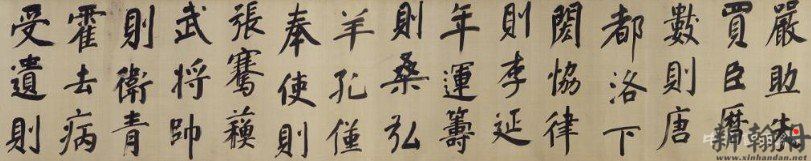 嚴助朱
買臣曆
數則唐
都洛下
閎協律
則李延
年運籌
則桑弘
羊孔僅
奉使則
張騫蘓
武將帥
則衛青
霍去病
受遺則
www.xinhandan.net